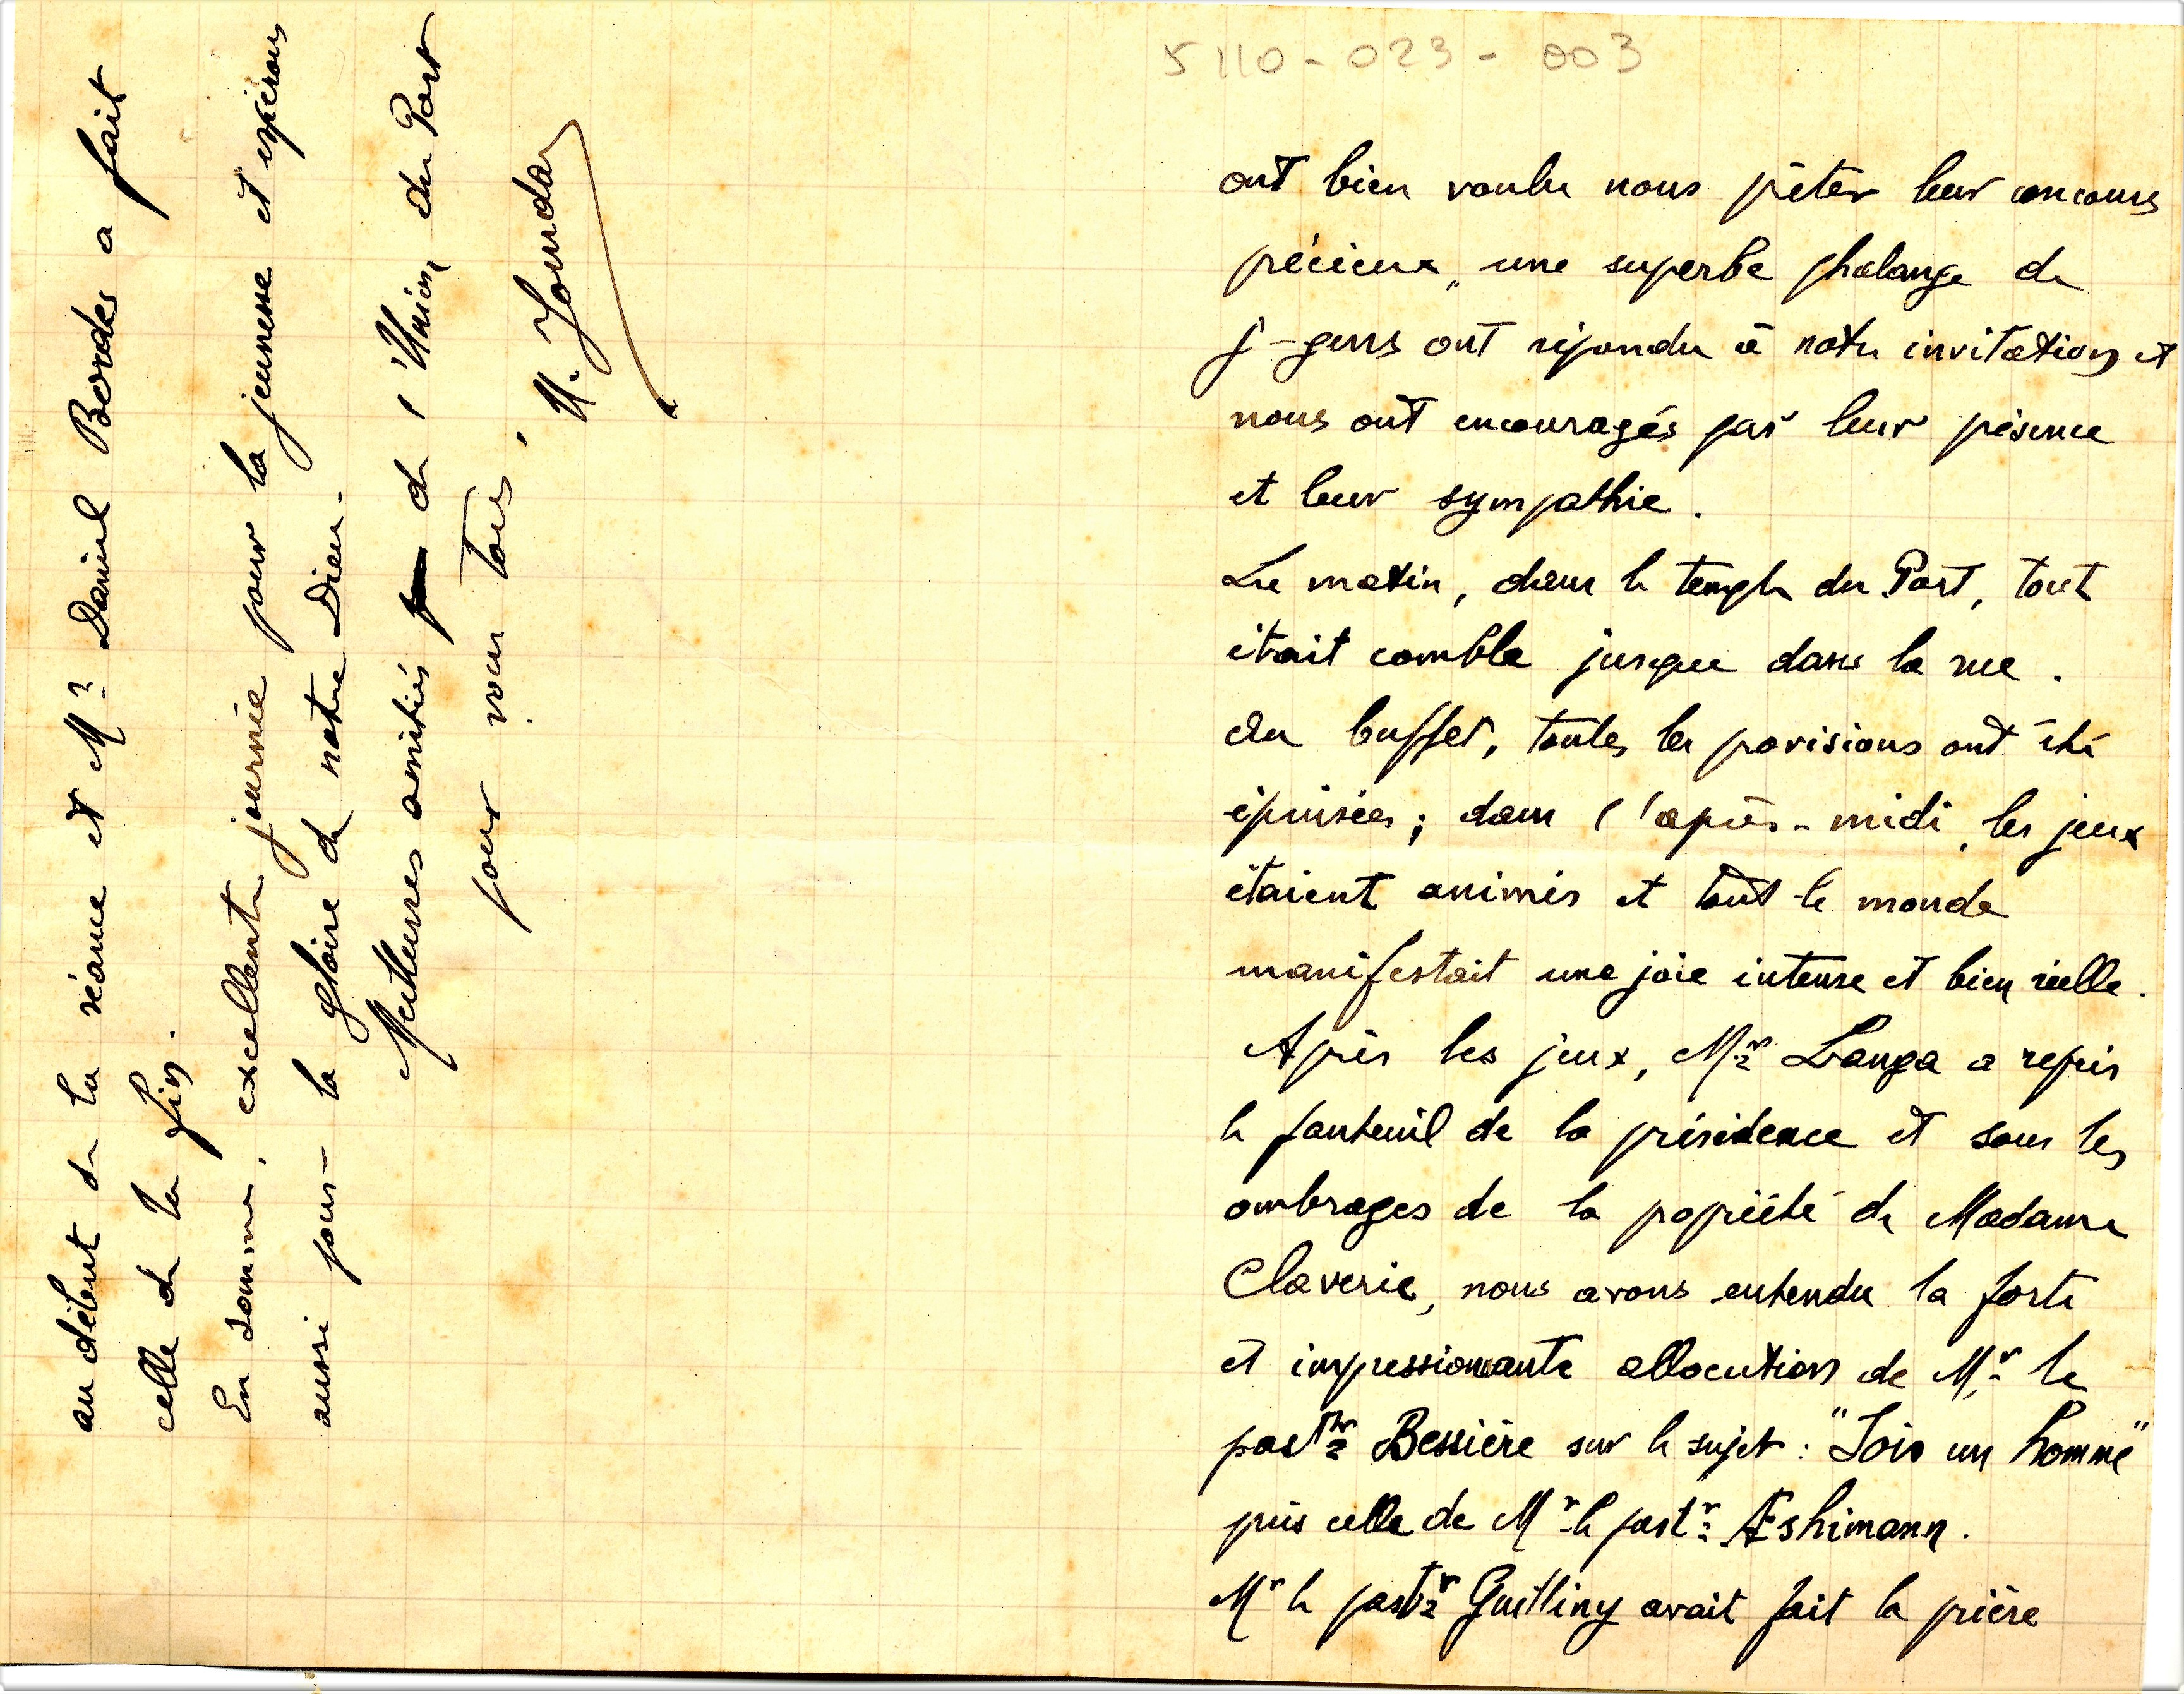 5110-023-003
ont bien voulu nous prêter leur concours
précieux, une superbe phalange de
j-gens ont répondu à notre invitation et
nous ont encouragés par leur présence
et leur sympathie.
Le matin, dans le temple du Port, tout
était comble jusque dans la rue.
Au buffet, toutes les provisions ont été
épuisées; dans l'après-midi, les jeux
étaient animés et tout le monde
manifestait une joie intense et bien réelle.
Après les jeux, Mr Langa a repris
le fauteuil de la présidence et sous les
ombrages de la propriété de Madame
Claverie, nous avons entendu la forte
et impressionnante allocution de Mr le
pastr Bessière sur le sujet : "Sois un homme"
puis celle de Mr le pastr Æshimann.
Mr le pastr avait fait la prière
au début de la séance et Mr Daniel Bordes a fait
celle de la fin.
En somme, excellente journée pour la jeunesse et espérons
aussi pour la gloire de notre Dieu.
Meilleures amitiés de l'Union du Port
pour vous tous,